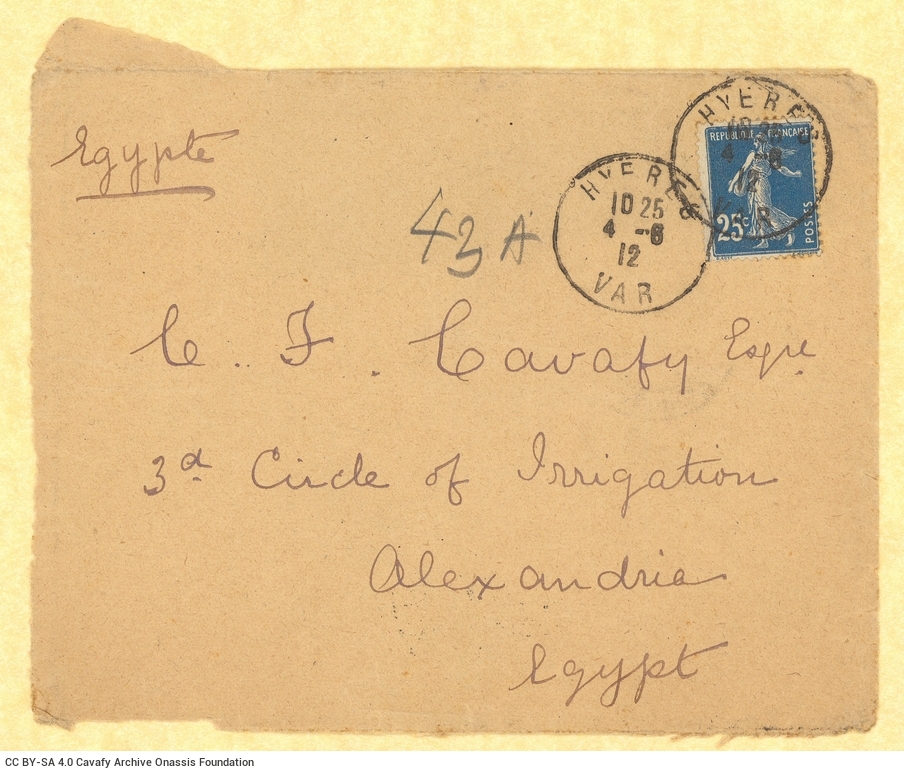 Egypte
43 A
HYERES
10 25
4 -6
12
VAR
HYERES
10 25
4 -6
12
VAR
REPUBLIQUE FRANCAISE
25c
POSTES
C. F. Cavafy Esqre.
3d Circle of Irrigation
Alexandria
Egypt
CC BY-SA 4.0 Cavafy Archive Onassis Foundation